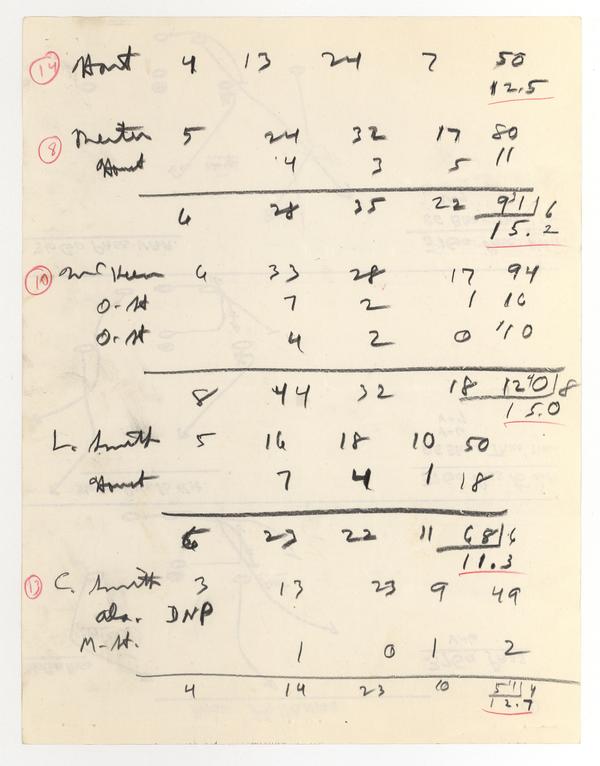 14 Hart 4 13 24 7 50
12.5
8 5 24 32 17 80
4 3 5 11
6 28 35 22 91 6
15.2
10 6 33 28 17 94
O-St 7 2 1 16
O-St 4 2 0 10
8 44 32 18 120 8
15.0
L. Smith 5 16 18 10 50
7 4 1 18
6 23 22 11 68 6
11.3
13 C. Smith 3 13 23 9 49
Ala. DNP
M-St. 1 0 1 2
4 14 23 10 51 4
12.7